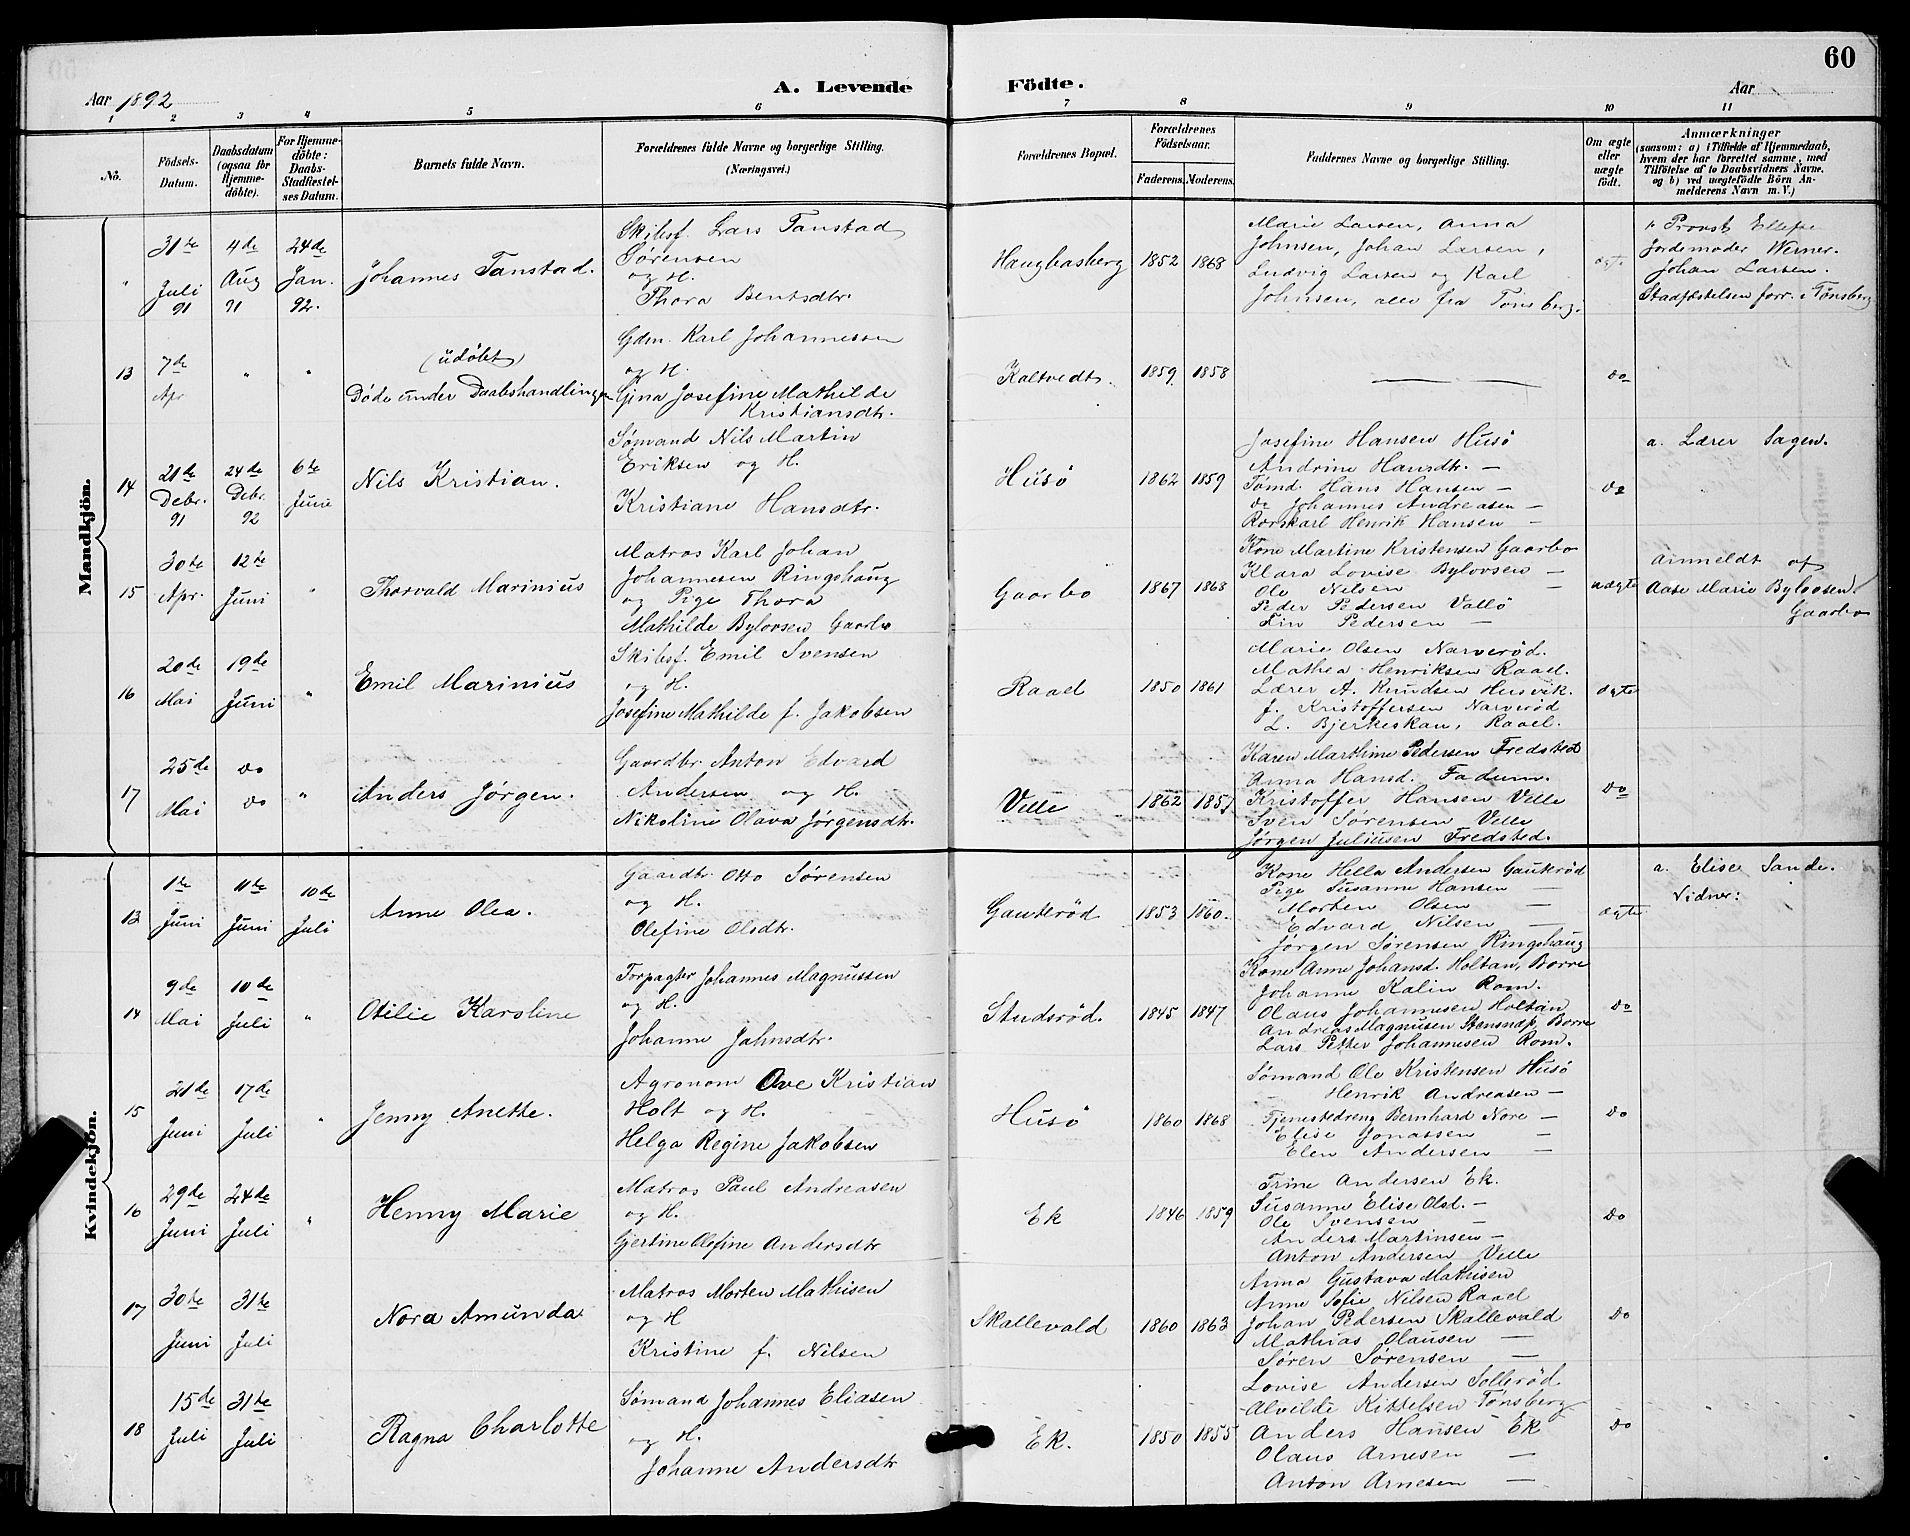 60
Aar 1892
A. Levende
Födte.
Aar
1 2 3 4 5 6 7 8 9 10 11
No.
Födsels-Datum.
Daabsdatum (ogsaa för Hjemme-döbte).
For Hjemme-döbte: Daabs-Stadfæstel-ses Datum.
Barnets fulde Navn.
Forældrenes fulde Navne og borgerlige Stilling. (Næringsvei.)
Forældrenes Bopæl.
Forældrenes Födselsaar.
Faderens. Moderens.
Faddernes Navne og borgerlige Stilling.
Om ægte eller uægte födt.
Anmærkninger
(saasom: a) i Tilfælde af Hjemmedaab,
hvem der har forrettet samme, med
Tilföielse af to Daabsvidners Navne,
og b) ved uægtefödte Börn An-
melderens Navn m. V.)
Mandkjön.
" 31te Juli 91 4de Aug 91 24de Jan. 92.
Johannes Tanstad.
Skibsf. Lars Tanstad
Sørensen
og H.
Thora Bentsdtr.
Haugbasberg 1852 1868
Marie Larsen, Anna
Johnsen, Johan Larsen,
Ludvig Larsen og Karl
Johnsen, alle fra Tønsberg.
ægte
Provst Ellefse
Jordemoder Werner.
Johan Larsen.
Stadfæstelsen forr. i Tønsberg
13 7de Apr " "
(udøbt)
Døde under Daabshandlingen
Gdm. Karl Johannessen
og H.
Gina Josefine Mathilde
Kristiansdtr.
Kaltvedt. 1859 1858
do
14 21de Debr. 91 24de Debr. 92 6te Juni
Nils Kristian.
Sømand Nils Martin
Eriksen og H.
Kristiane Hansdtr.
Husø 1862 1859
Josefine Hansen Husø
Andrine Hansdtr. —
Tømd. Hans Hansen —
do Johannes Andreasen —
Rorskarl Henrik Hansen —
do
a. Lærer Sagen.
15 30te Apr. 12te Juni "
Thorvald Marinius
Matros Karl Johan
Johannesen Ringshaug
og Pige Thora
Mathilde Bylovsen Gaarbo
Gaarbo 1867 1868
Kone Martine Kristensen Gaarbo
Klara Lovise Bylovsen —
Ole Nilsen —
Peder Pedersen Vallø
Fin Pedersen —
uægte
Anmeldt af
Aase Marie Bylovsen.
Gaarbo
16 20de Mai 19de Juni "
Emil Marinius
Skibsf. Emil Svensen
og H.
Josefine Mathilde f. Jakobsen
Raael 1850 1861
Marie Olsen Narverød.
Mathea Henriksen Raael.
Lærer A. Knudsen Husvik.
J. Kristoffersen Narverød
L. Bjerkeskan, Raael.
ægte
17 25de Mai do do "
Anders Jørgen.
Gaardbr. Anton Edvard
Andersen og H.
Nikoline Olava Jørgensdtr.
Velle 1862 1857
Karen Marthine Pedersen Fredsted
Anna Hansd. Fadum.
Kristoffer Hansen Velle
Sven Sørensen Velle
Jørgen Juliusen Fredsted.
do
Kvindekjön.
13 1te Juni 11te Juni 10de Juli
Anne Olea.
Gaardbr. Otto Sørensen
og H.
Olefine Olsdtr.
Gauterød 1853 1860.
Kone Hella Andersen Gaukrød
Pige Susanne Hansen —
Morten Olsen —
Edvard Nilsen —
Jørgen Sørensen Ringshaug
ægte
a. Elise Sande.
Vidner:
14 9de Mai 10de Juli "
Otilie Karoline
Forpagter Johannes Magnussen
og H.
Johanne Jahnsdtr.
Studsrød. 1845 1847
Kone Anne Johansd. Holtan, Borre
Johanne Kalin Rom.
Olaus Johannesen Holtan
Andreas Magnusen Stensnap, Borre
Lars Petter Johannesen Rom.
do
15 21de Juni 17de Juli "
Jenny Anette.
Agronom Ove Kristian
Holt og H.
Helga Regine Jakobsen
Husø 1860 1868
Sømand Ole Kristensen Husø
— Henrik Andreasen —
Tjenestedreng Bernhard Nore —
Elise Jonassen —
Elen Andersen —
do
16 29de Juni 24de Juli "
Henny Marie
Matros Paul Andreasen
og H.
Gjertine Olefine Andersdtr
Ek 1846 1859
Trine Andersen Ek.
Susanne Elise Olsd. —
Ole Svensen —
Anders Martinsen —
Anton Andersen Velle
do
17 30te Juni 31te Juli
Nora Amunda
Matros Morten Mathisen
og H
Kristine f. Nilsen
Skallevald 1860 1863
Anna Gustava Mathisen
Anne Sofie Nilsen Raael
Johan Pedersen Skallevald
Mathias Olausen —
Søren Sørensen —
do
18 15de Juli 31te Juli
Ragna Charlotte
Sømand Johannes Eliasen
og H.
Johanne Andersdtr
Ek. 1850 1855
Lovise Andersen Sollerød
Alvilde Kittelsen Tønsberg
Anders Hansen Ek
Olaus Arnesen —
Anton Arnesen —
do